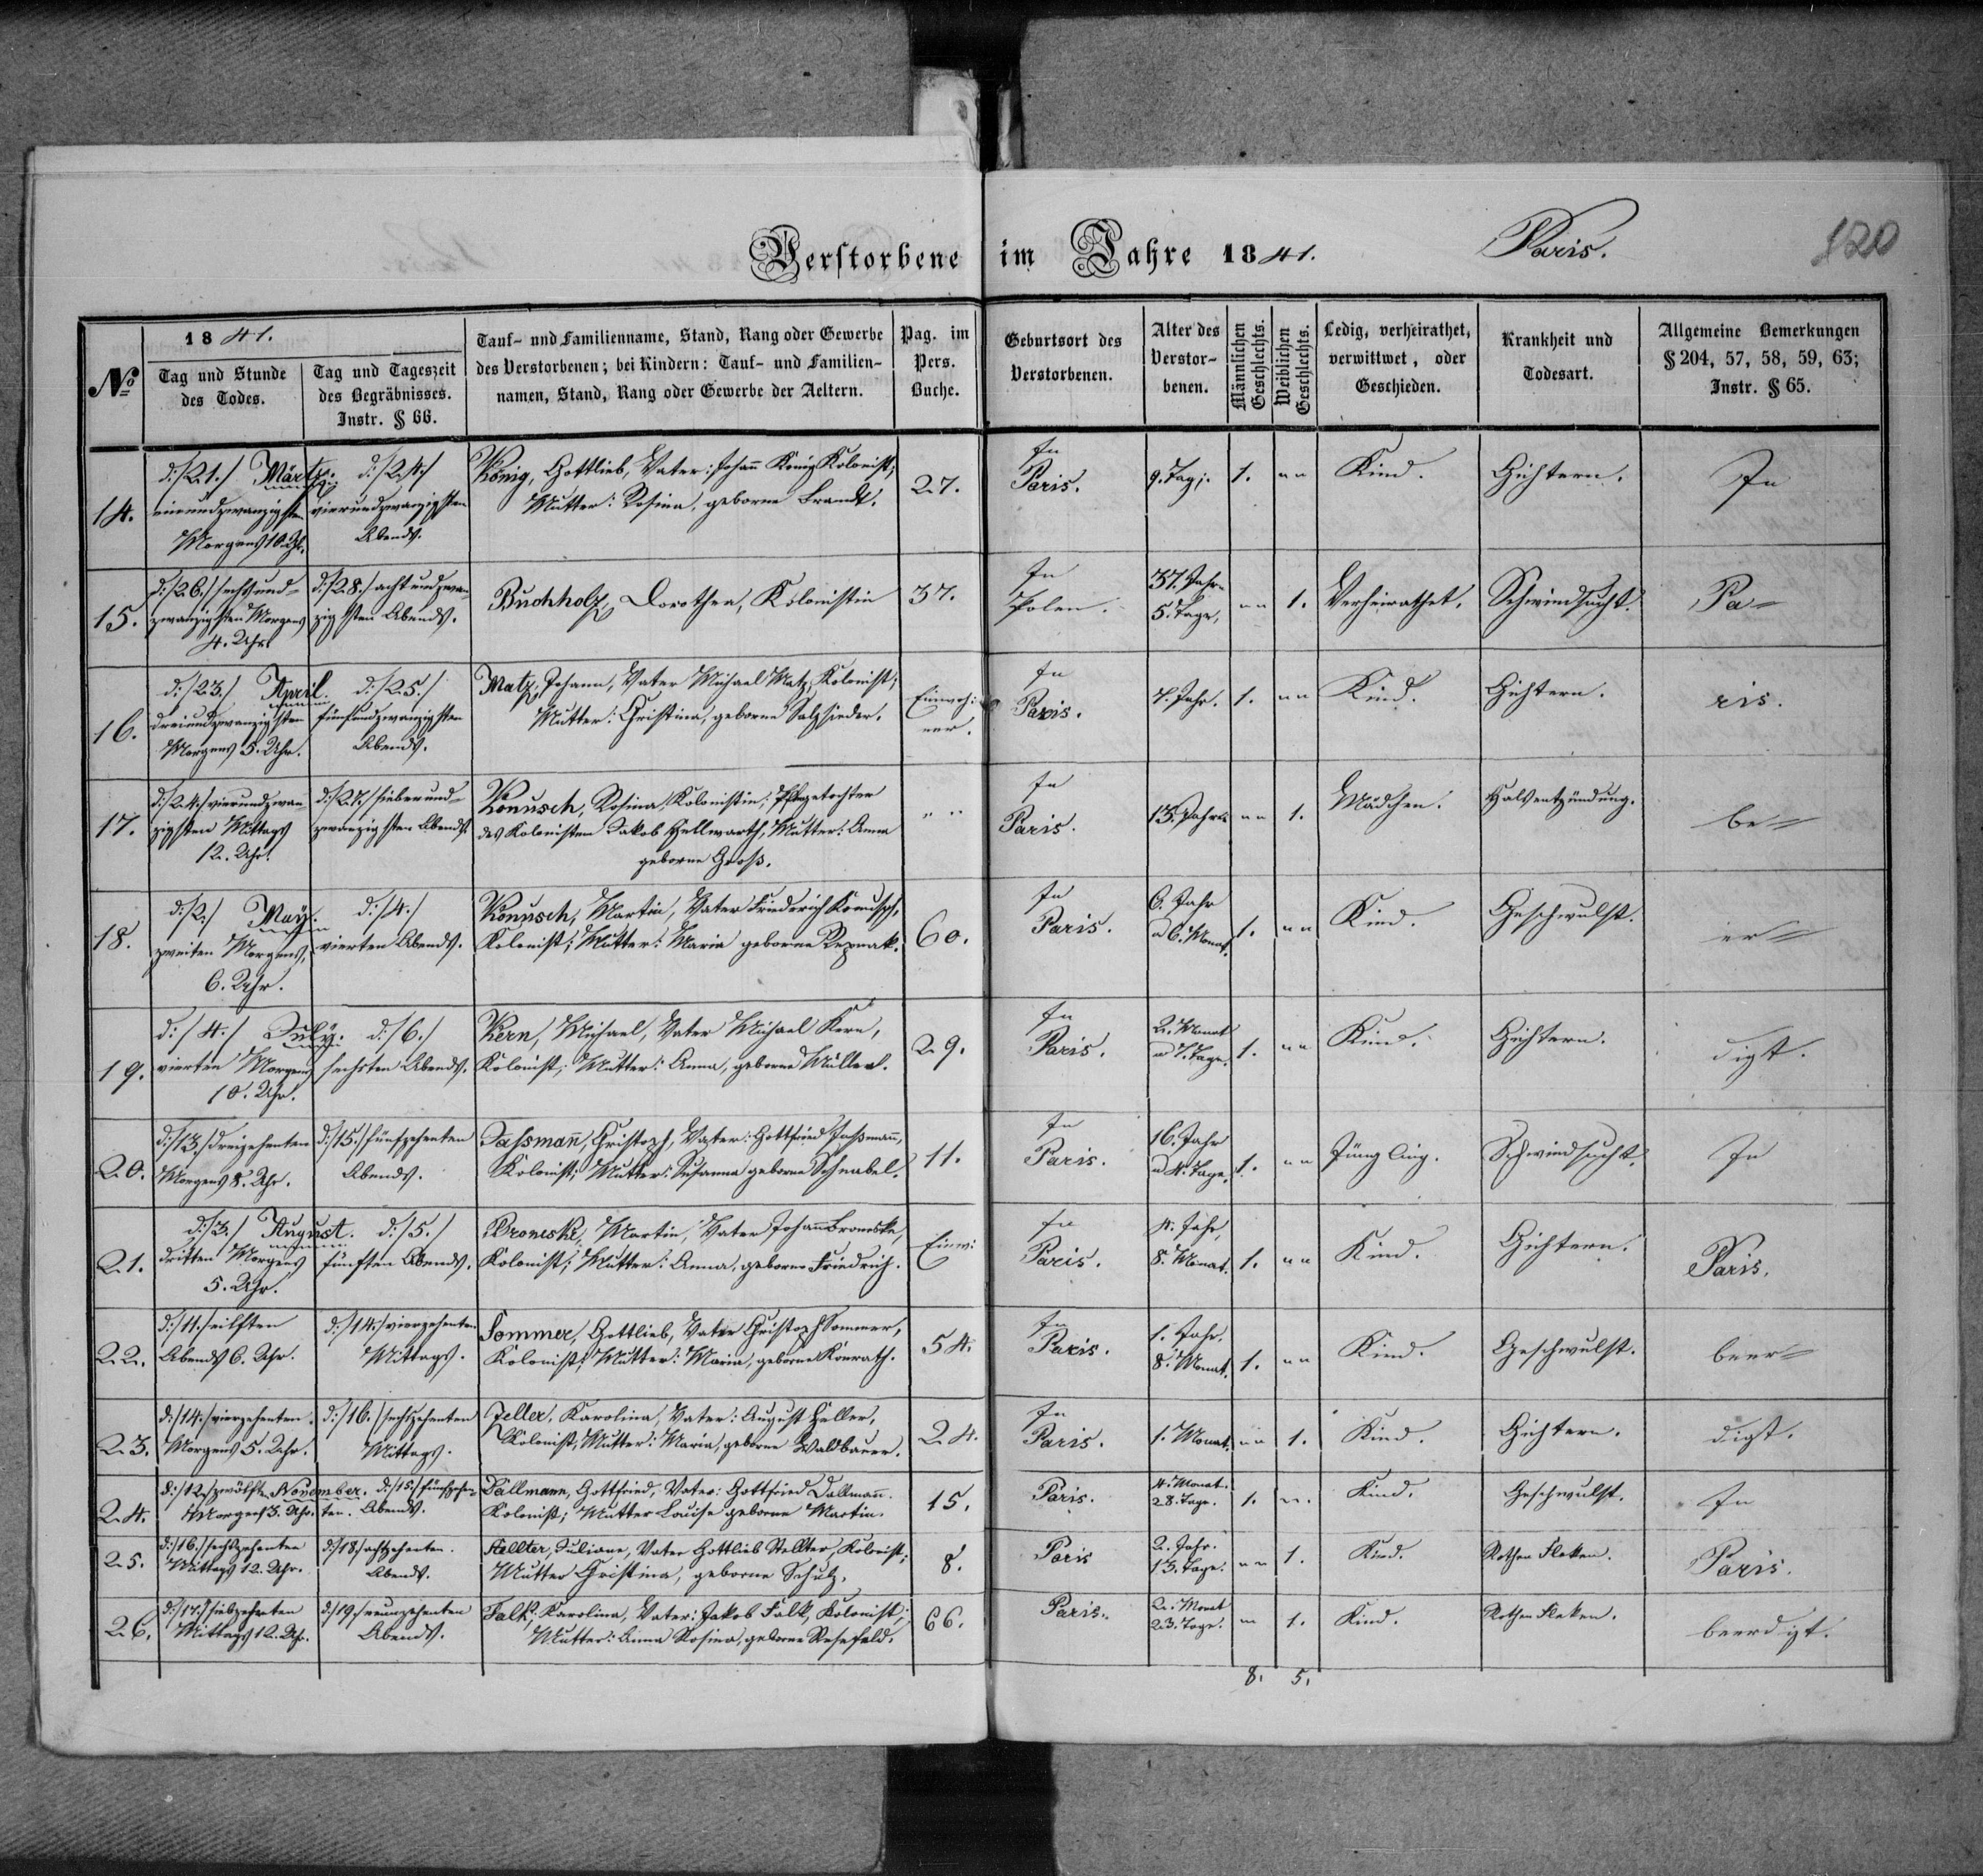 Verstorbene im Jahre 1841. Paris. 120
№
1841.
Tag und Stunde des Todes.
Tag und Tageszeit des Begräbnisses. Instr. § 66.
Tauf- und Familienname, Stand, Rang oder Gewerbe
des Verstorbenen; bei Kindern: Tauf- und Familien-
namen, Stand, Rang oder Gewerbe der Aeltern.
Pag. im Pers. Buche.
Geburtsort des Verstorbenen.
Alter des Verstor-benen.
Männlichen Geschlechts.
Weiblichen Geschlechts.
Ledig, verheirathet, verwittwet, oder Geschieden.
Krankheit und Todesart.
Allgemeine Bemerkungen § 204, 57, 58, 59, 63; Instr. § 65.
d: /21./ Märtz. d: /24./ König, Gottlieb, Vater: Johann König Kolonist; In
14. einundzwanzigsten vierundzwanzigsten Mutter: Rosina, geborne Brandt. 27. Paris. 9. Tage. 1. " " Kind. Gichtern. In
Morgens 10 Uhr. Abends.
d: /26./ sechsund= d: /28./ acht und zwan- Buchholz, Dorothea, Kolonistin 37. In 37. Jahr
15. zwanzigsten Morgens zigsten Abends. Polen. 5. Tage, " " 1. Verheirathet. Schwindsucht. Pa=
4. Uhr.
d: /23./ April. d: /25./ Matz, Johann, Vater Michael Matz, Kolonist; Einwoh= In
16. dreiundzwanzigsten fünfundzwanzigsten Mutter: Christina, geborne Salzsieder. ner. Paris. 7. Jahr. 1. " " Kind. Gichtern. ris.
Morgens 5. Uhr. Abends.
d: /24./ vierundzwan- d: /27./ siebenund= Konusch, Rosina, Kolonistin, Pflegetochter In
17. zigsten Mittags zwanzigsten Abends des Kolonisten Jakob Hellwarth, Mutter: Anna " " Paris. 13. Jahr " " 1. Mädchen. Halsentzündung. be=
12. Uhr. geborne Groß.
d: /2./ May. d: /4./ Konusch, Martin, Vater Friederich Konusch, In 6. Jahr
18. zweiten Morgens, vierten Abends. Kolonist; Mutter: Maria geborne Repnak. 60. Paris. u 6. Monat. 1. " " Kind. Geschwulst. er=
6. Uhr.
d: /4./ July. d: /6./ Kern, Michael, Vater Michael Kern, In 2. Monat
19. vierten Morgens sechsten Abends. Kolonist; Mutter: Anna, geborne Müller. 29. Paris. u 7. Tage. 1. " " Kind. Gichtern. digt.
10. Uhr.
d: /13./ dreizehenten d: /15./ fünfzehenten Jassmañ, Christoph, Vater: Gottfried Jaßmañ, In 16. Jahr
20. Morgens 8. Uhr. Abends. Kolonist; Mutter: Susanna geborne Schnabel. 11. Paris. u 4. Tage. 1. " " Jüngling. Schwindsucht. In
d: /3./ August. d: /5./ Broneske, Martin, Vater Johann Broneske, In 4. Jahr,
21. dritten Morgens fünften Abends. Kolonist; Mutter: Anna, geborne Friedrich. Einw: Paris. 8. Monat. 1. " " Kind. Gichtern. Paris.
5. Uhr.
d: /11./ eilften d: /14./ vierzehenten Sommer, Gottlieb, Vater Christoph Sommer, In 1. Jahr.
22. Abends 6. Uhr. Mittags. Kolonist; Mutter: Maria, geborne Konrath. 54. Paris. 8. Monat. 1. " " Kind. Geschwulst. beer=
d: /14./ vierzehenten d: /16./ sechszehenten Zeller, Karolina, Vater: August Zeller, In
23. Morgens 5. Uhr. Mittags. Kolonist; Mutter: Maria, geborne Waldbauer. 24. Paris. 1. Monat. " " 1. Kind. Gichtern. digt.
d: /12./ zwölften November. d: /15./ fünfzehen- Dallmann, Gottfried, Vater: Gottfried Dallmañ. 4. Monat.
24. Morgens 3. Uhr. ten. Abends. Kolonist; Mutter Louise geborne Martin. 15. Paris. 28. Tage. 1. " " Kind. Geschwulst. In
d: /16./ sechszehenten d: /18./ achtzehenten. Stellter, Juliane, Vater Gottlieb Stellter, Kolonist; 2. Jahr.
25. Mittags 12. Uhr. Abends. Mutter Christina, geborne Schulz. 8. Paris 13. Tage. " " 1. Kind. Rothen Fleken. Paris.
d: /17./ siebzehnten d: /19./ neunzehenten Falk, Karolina, Vater: Jakob Falk, Kolonist; 2. Monat
26. Mittags 12. Uhr. Abends. Mutter: Anna Rosina, geborne Rosefeld. 66. Paris. 23. Tage. " 1. Kind. Rothen Fleken. beerdigt.
8. 5.